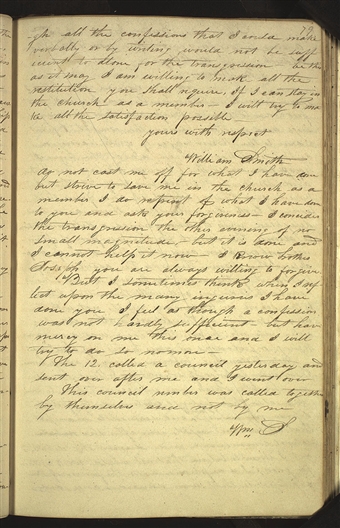 all the confessions that I could make
verbally or by writing would not be suff
icient to atone for the transgression be this
as it may I am willing to make all the
restitution you shall require, If I can stay in
the church as a member I will try to ma
ke all the satisfaction possible
yours with respect
William Smith
Do not cast me off for what I have done
but strive to save me in the church as a
member I do repent of what I have done
to you and ask your forgiveness I consider
the transgression the other evening of no
small magnitude, but it is done and
I cannot help it now I know brother
Joseph you are always willing to forgive
But I sometimes think when I ref
lect upon the many injuries I have
done you I feel as though a confession
was not hardly sufficient but have
mercy on me this once and I will
try to do so no more
The 12 called a council yesterday and
sent over after me and I went over
This council was called together
by themselves and not by me
Wm S